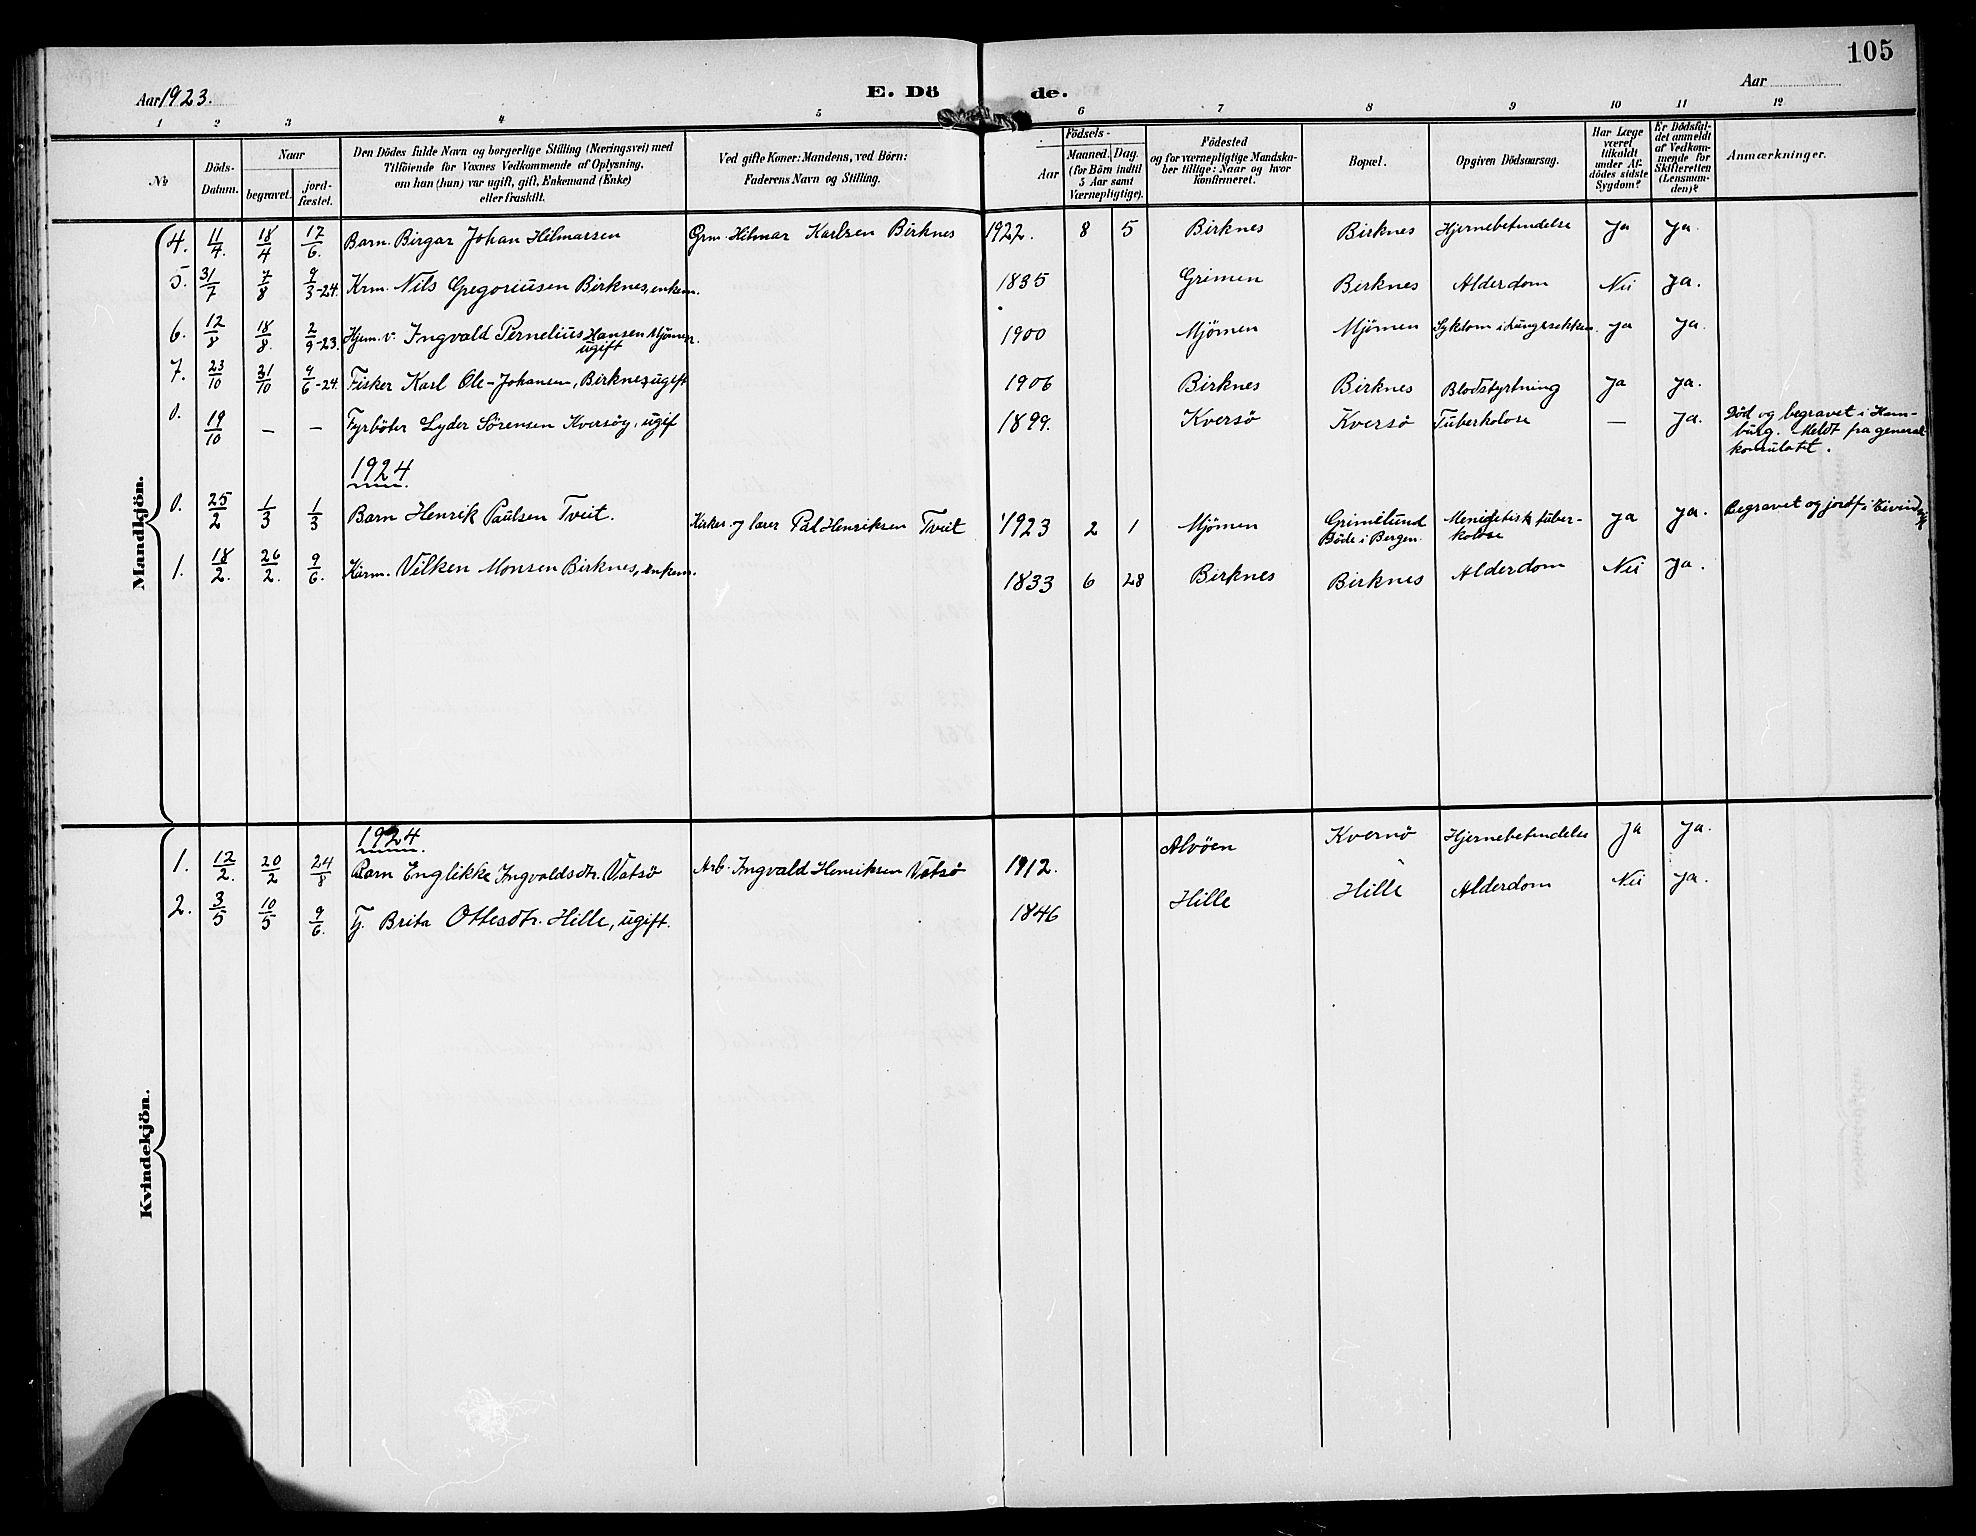 105
Aar 1923.
E. Dö de.
Aar
1 2 3 4 5 6 7 8 9 10 11 12
No
Döds-
Datum.
Naar
begravet.
jord-
fæstet.
Den Dödes fulde Navn og borgerlige Stilling (Næringsvei) med
Tilföiende for Voxnes Vedkommende af Oplysning,
om han (hun) var ugift, gift, Enkemand (Enke)
eller fraskilt.
Ved gifte Koner: Mandens, ved Börn:
Faderens Navn og Stilling.
Födsels-
Aar
Maaned. Dag.
(for Börn indtil
5 Aar samt
Værnepligtige).
Födested
og for værnepligtige Mandska-
ber tillige: Naar og hvor
konfirmeret.
Bopæl.
Opgiven Dödsaarsag.
Har Læge
været
tilkaldt
under Af-
dödes sidste
Sygdom?
Er Dödsfal-
det anmeldt
af Vedkom-
mende for
Skifteretten
(Lensman-
den)?
Anmærkninger.
Mandkjön.
4. 11/4. 18/4 17/6. Barn. Birgar Johan Hilmarsen Grm. Hilmar Karlsen Birknes 1922. 8 5 Birknes Birknes Hjernebetendelse Ja Ja.
5. 31/7 7/8 9/3-24. Krm. Nils Gregoriusen Birknes, enkem. 1835 Grimen Birknes Alderdom Nei Ja.
6. 12/8 18/8. 2/9-23. Hjem. v. Ingvald Pernelius Hansen Mjömen.
ugift 1900 Mjömen Mjömen Sykdom i Ja Ja.
7. 23/10 31/10 9/6-24. Fisker Karl Ole-Johansen, Birknes, ugift 1906 Birknes Birknes Blodstyrtning Ja Ja.
0. 19/10 — — Fyrböter Lyder Sörensen Kversöy, ugif 1899. Kversö Kversö Tuberkolose — Ja. Död og begravet i Ham-
burg. Meldt fra general
konsulatet.
1924
0. 25/2 1/3 1/3 Barn Henrik Paulsen Tveit. Kirkes. og lærer Pal Henriksen Tveit 1923 2 1 Mjömen Grimelund
Böde i Bergen. tuber-
kolose Ja Ja. Begravet og jordf. i Eivindvik
1. 18/2. 26/2. 9/6. Kårm. Vilken Monsen Birknes, enkem. 1833 6 28 Birknes Birknes Alderdom Nei Ja.
Kvindekjön.
1924
1. 12/2. 20/2 24/8 Barn Englikke Ingvaldsdtr. Vatsö Arb. Ingvald Henriksen Vatsö 1912. Alvöen Kversö Hjernebetendelse Ja Ja.
2. 3/5 10/5 9/6. Tj. Brita Ottesdtr. Hille, ugift. 1846 Hille Hille Alderdom Nei Ja.